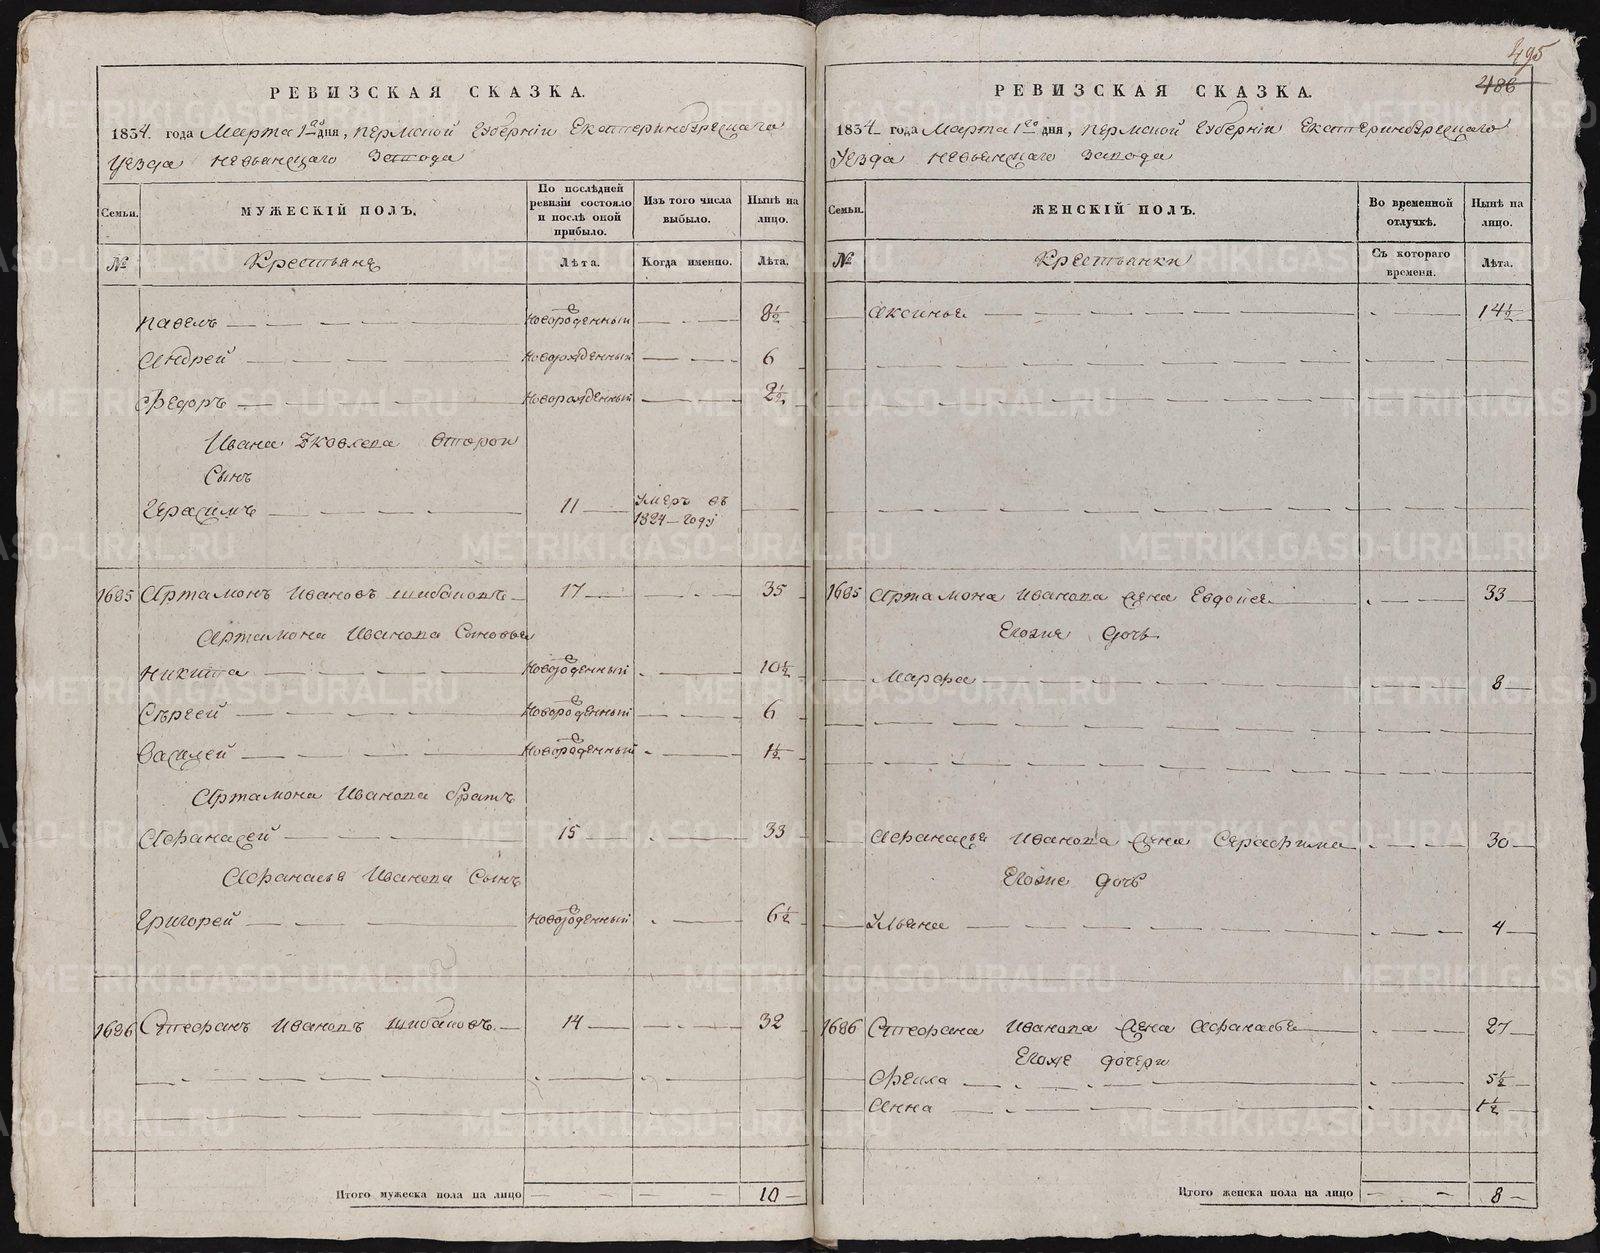 РЕВИЗСКАЯ СКАЗКА.
1834. года Марта 1го дня, Пермской Губернiи Екатеринбургскаго
Уезда Невьянскаго Завода
Семьи. МУЖЕСКIЙ ПОЛЪ. По послѣдней ревизiи состояло и послѣ оной прибыло. Изъ того числа выбыло. Нынѣ на лицо.
№ Крестьяне Лѣта. Когда именно. Лѣта.
Павелъ Новорожденный 8½
Андрей Новорожденный 6
Федоръ Новорожденный 2½
Ивана Яковлева второй
Сынъ
Герасимъ 11 Умеръ въ 1824 году
1685 Артамонъ Ивановъ Шибановъ 17 35
Артамона Иванова Сыновья
Никита Новорожденный 10½
Сергей Новорожденный 6
Василей Новорожденный 1½
Артамона Иванова братъ
Афанасей 15 33
Афанасья Иванова Сынъ
Григорей Новорожденный 6½
1686 Стефанъ Ивановъ Шибановъ 14 32
Итого мужеска пола на лицо 10
495
486
РЕВИЗСКАЯ СКАЗКА.
1834 года Марта 1го дня, Пермской Губернiи Екатеринбургскаго
Уезда Невьянскаго Завода
Семьи. ЖЕНСКIЙ ПОЛЪ. Во временной отлучкѣ. Нынѣ на лицо.
№ Крестьянки Съ котораго времени. Лѣта.
Аксинья 14½
1685 Артамона Иванова жена Евдокея 33
Егоже дочь
Марфа 8
Афанасья Иванова жена Серафима 30
Егоже дочь
Ульяна 4
1686 Стефана Иванова жена Афанасья 27
Егоже дочери
Фекла 5½
Анна 1½
Итого женска пола на лицо 8
METRIKI.GASO-URAL.RU